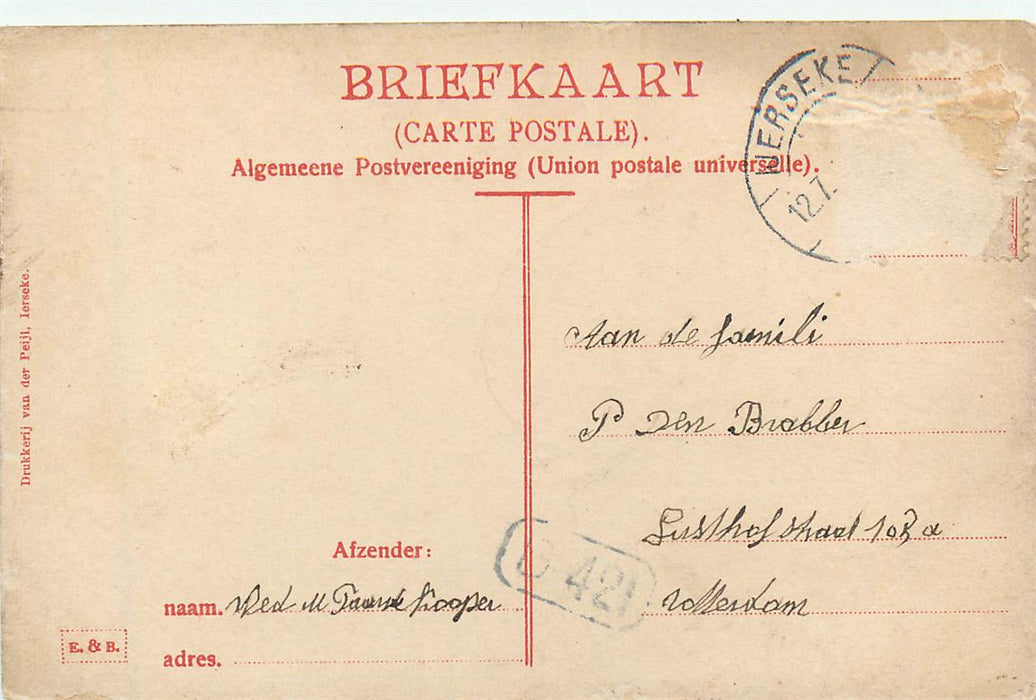 BRIEFKAART
(CARTE POSTALE).
Algemeene Postvereeniging (Union postale universelle).
IERSEKE
12.7.
Drukkerij van der Peijl, Ierseke.
Aan de famili
P Den Brabber
Lusthofstraat
Rotterdam
421
Afzender:
naam. Wed M
adres.
E. & B.